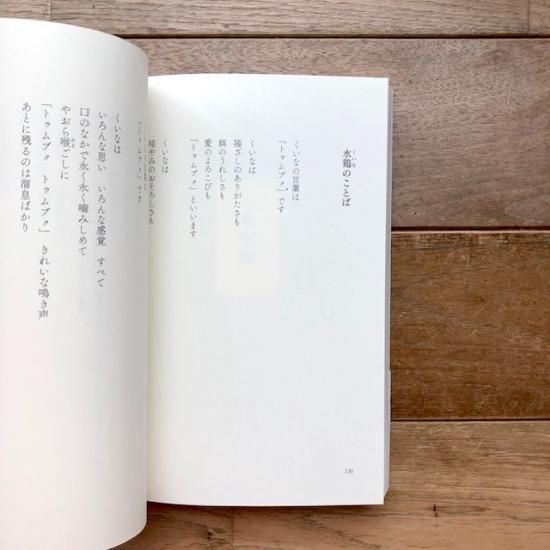 水鶏のことば
くいな
くいなの言葉は
「トゥムブク」です
くいなは
陽ざしのありがたさも
餌のうれしさも
愛のよろこびも
「トゥムブク」といいます
くいなは
暗やみのおそろしさも
「トゥムブク」です
くいなは
いろんな思い いろんな感覚 すべて
口のなかで永く永く噛みしめて
やおら喉ごしに
「トゥムブク トゥムブク」 きれいな鳴き声
あとに残るのは溜息ばかり
136